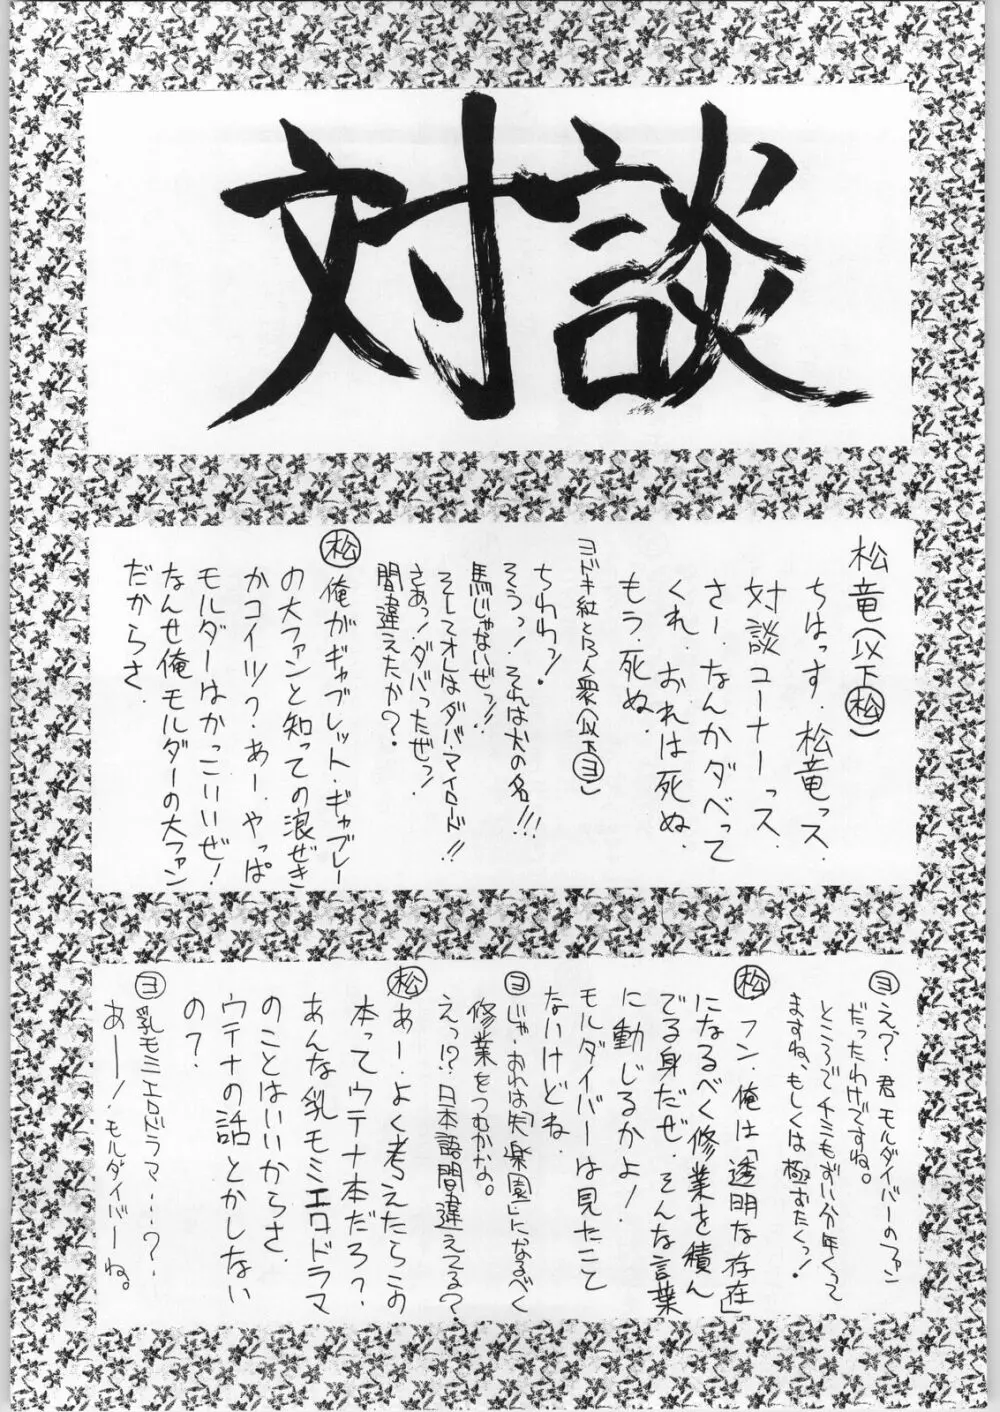 対談
松竜(以下松)
ちはっす.松竜っス.
対談コーナーっス.
さー.なんかダベって
くれ.おれは死ぬ.
もう.死ぬ.
ちわわッ!
そうっ!それは犬の名!!!
馬じゃないぜッ!!
そしてオレはダバ・マイロード!!
さあっ!ダバったぜっ!
間違えたか?.
松 俺がギャブレット・ギャブレー
の大ファンと知っての浪ぜき
かコイツ?.あー.やっぱ
モルダーはかっこいいぜ!
なんせ俺モルダーの大ファン
だからさ.
ヨ えっ?君モルダイバーのファン
だったわけですね。
ところでチミもずい分年くって
ますね、もしくは極おたくっ!
松 フン.俺は「透明な存在」
になるべく修業を積ん
でる身だぜ.そんな言葉
に動じるかよ!
モルダイバーは見たこと
ないけどね.
ヨ じゃ.おれは「失楽園」になるべく
修業をつむかな。
えっ!?日本語間違えてる?.
松 あー.よく考えたらこの
本ってウテナ本だろ?.
あんな乳モミエロドラマ
のことはいいからさ.
ウテナの話とかしない
の?.
ヨ 乳モミエロドラマ・・・・?.
あー!.モルダイバーね。